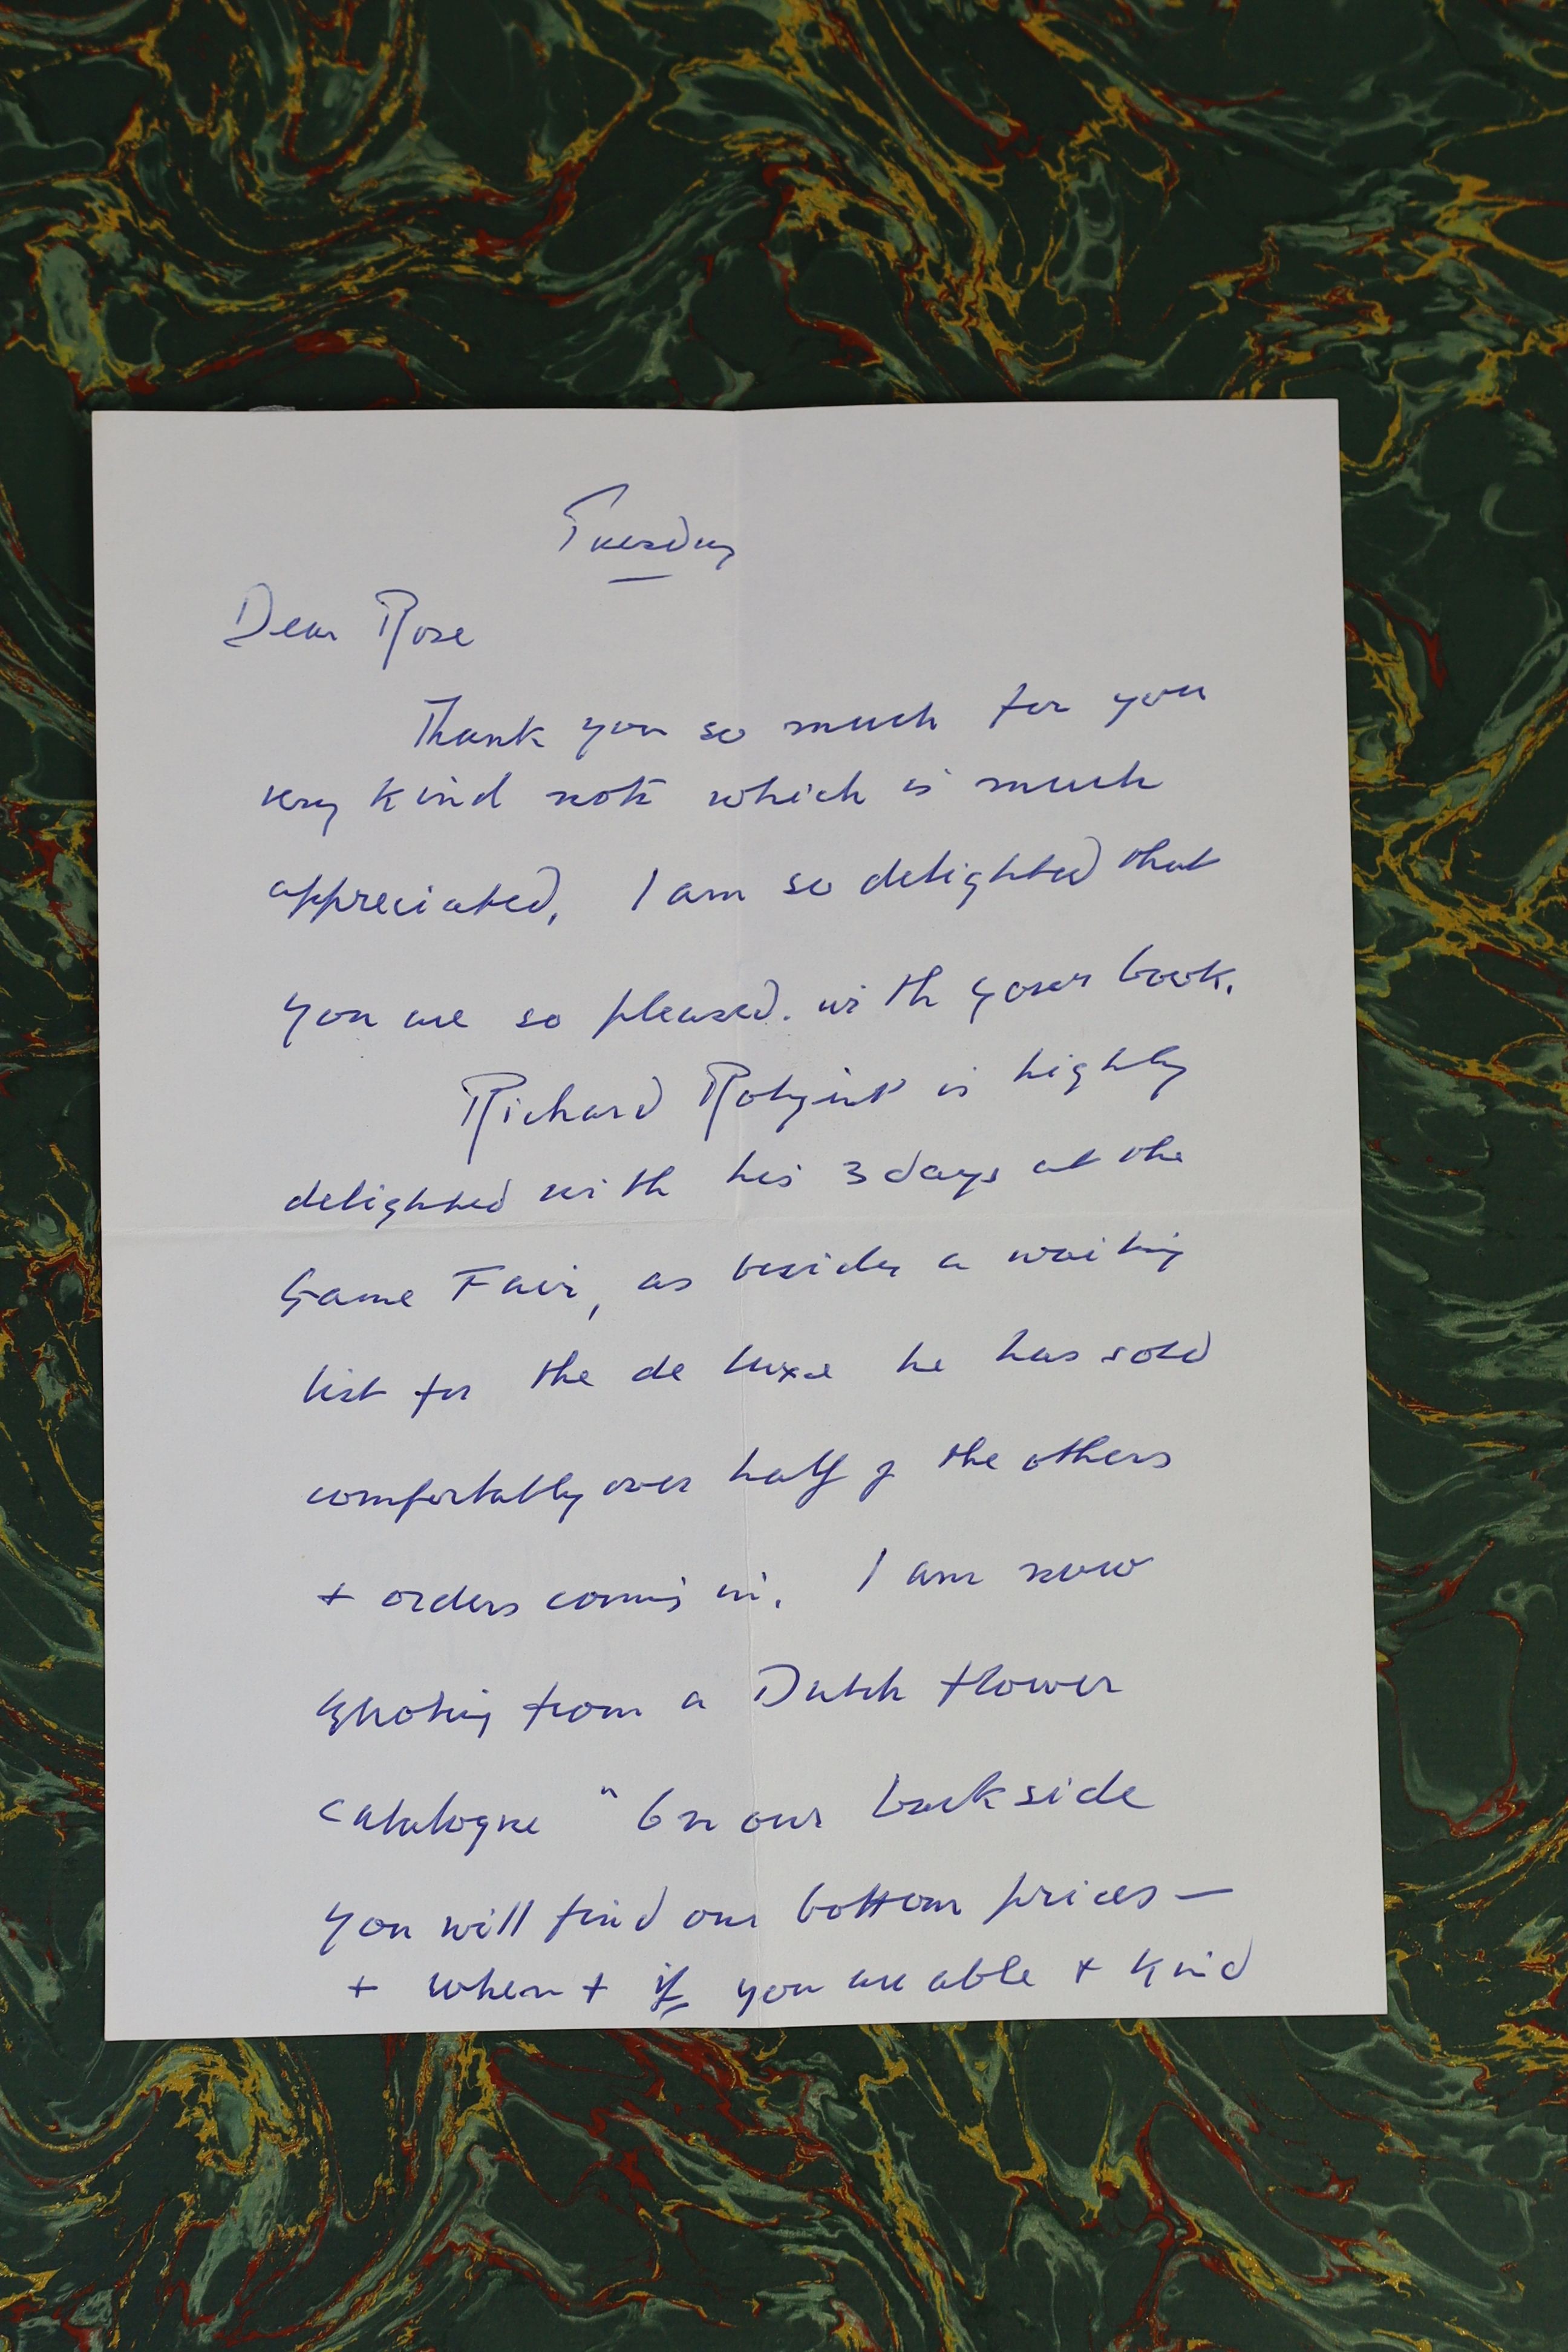 Tuesday
Dear Rose
Thank you so much for your
very kind note which is much
appreciated, I am so delighted that
you are so pleased. with your book.
Richard is highly
delighted with his 3 days at the
Game Fair, as besides a waiting
list for the de luxe he has sold
comfortably over half of the others
+ orders coming in. I am now
quoting from a Dutch flower
catalogue " on our backside
you will find our bottom prices —
+ when + if you are able + kind